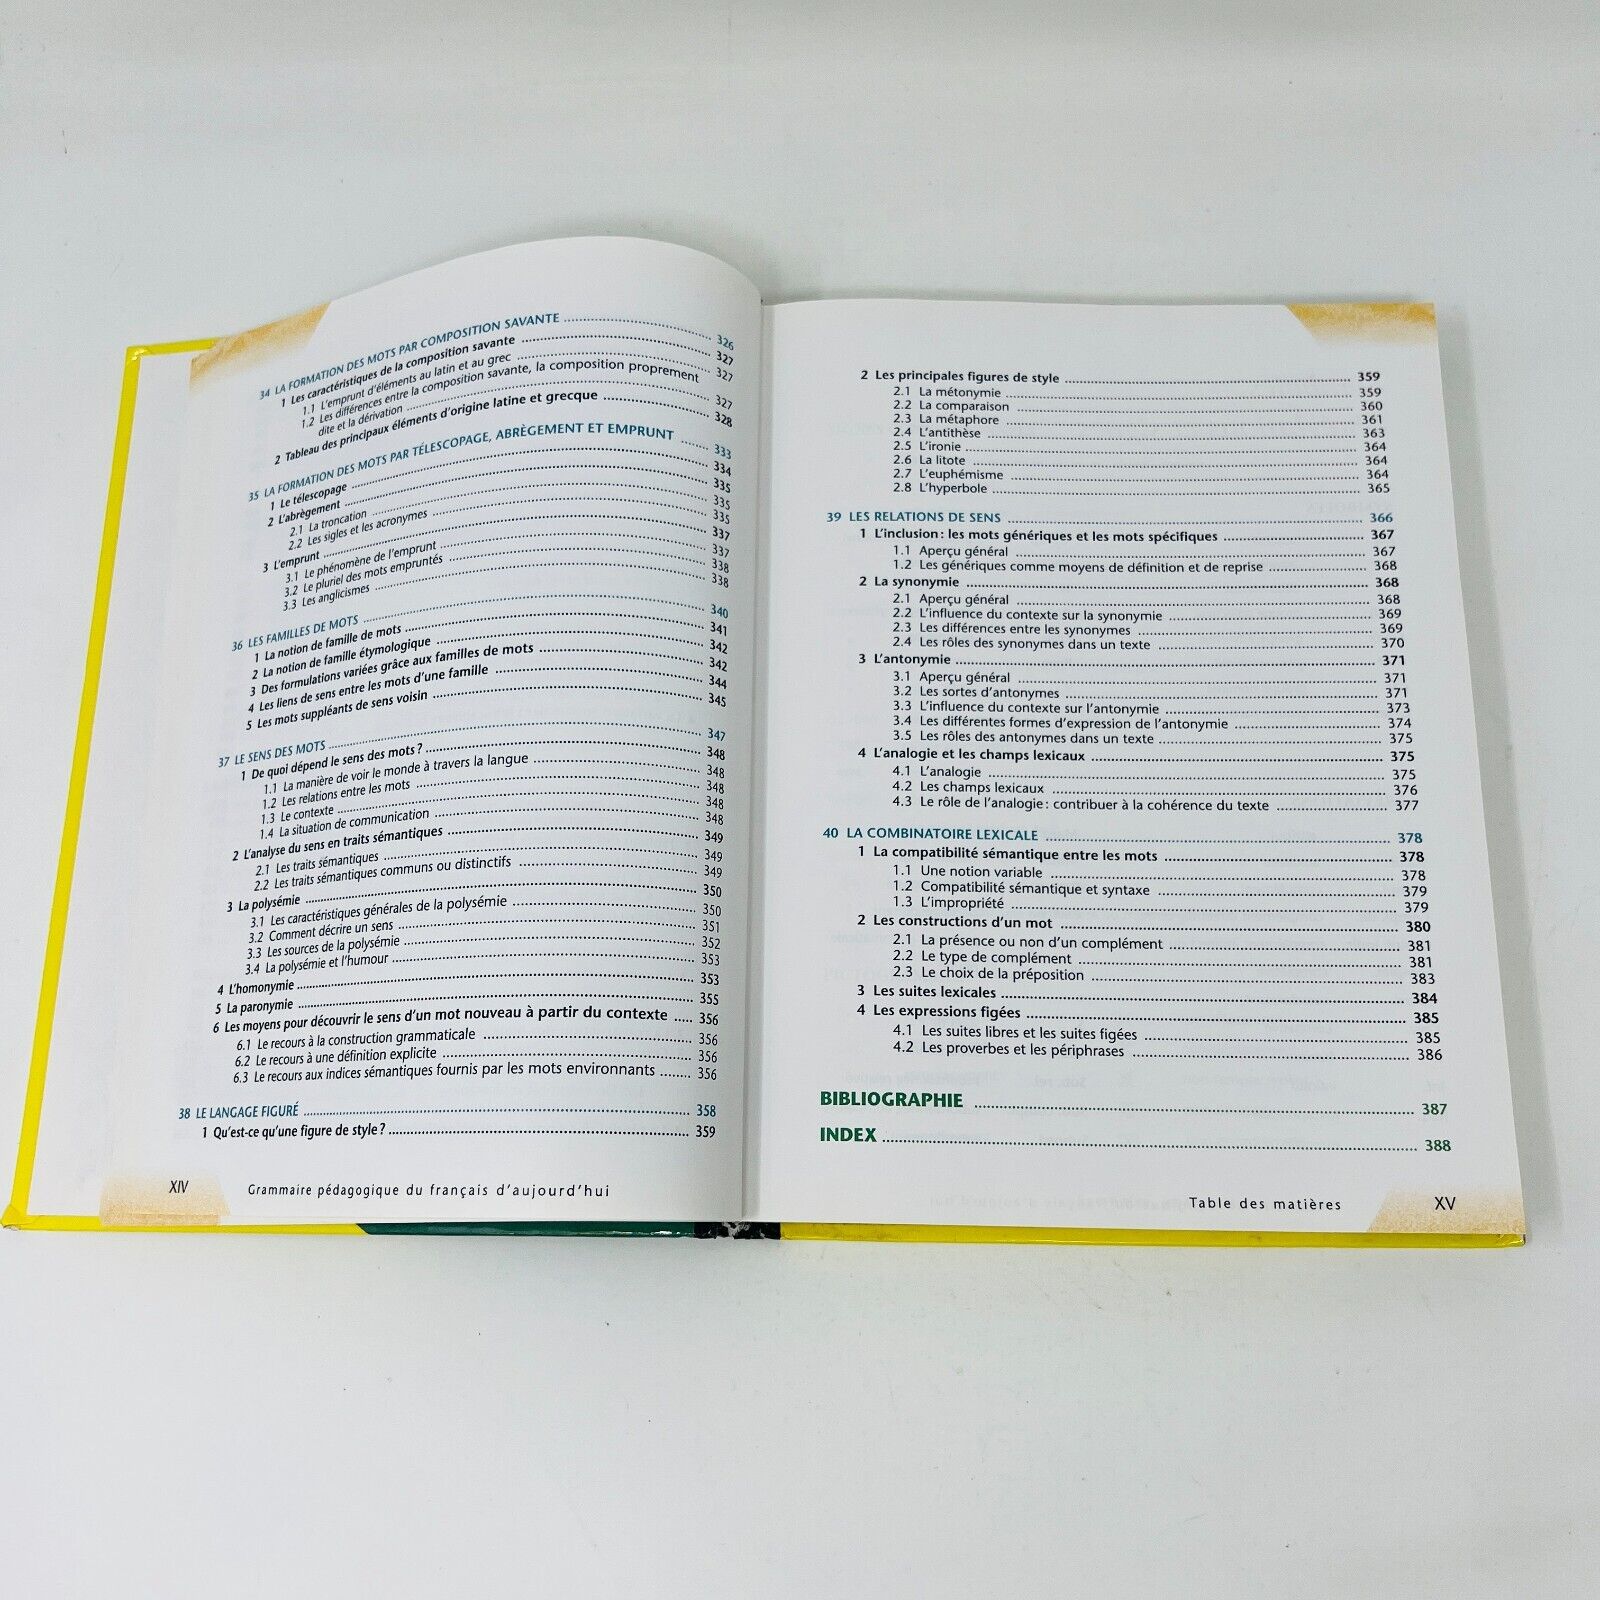 34 LA FORMATION DES MOTS PAR COMPOSITION SAVANTE 326
1 Les caractéristiques de la composition savante 327
1.1 L'emprunt d'éléments au latin et au grec 327
1.2 Les différences entre la composition savante, la composition proprement
dite et la dérivation 327
2 Tableau des principaux éléments d'origine latine et grecque 328
35 LA FORMATION DES MOTS PAR TÉLESCOPAGE, ABRÈGEMENT ET EMPRUNT 333
1 Le télescopage 334
2 L'abrègement 335
2.1 La troncation 335
2.2 Les sigles et les acronymes 335
3 L'emprunt 337
3.1 Le phénomène de l'emprunt 337
3.2 Le pluriel des mots empruntés 338
3.3 Les anglicismes 338
36 LES FAMILLES DE MOTS 340
1 La notion de famille de mots 341
2 La notion de famille étymologique 342
3 Des formulations variées grâce aux familles de mots 342
4 Les liens de sens entre les mots d'une famille 344
5 Les mots suppléants de sens voisin 345
37 LE SENS DES MOTS 347
1 De quoi dépend le sens des mots ? 348
1.1 La manière de voir le monde à travers la langue 348
1.2 Les relations entre les mots 348
1.3 Le contexte 348
1.4 La situation de communication 348
2 L'analyse du sens en traits sémantiques 349
2.1 Les traits sémantiques 349
2.2 Les traits sémantiques communs ou distinctifs 349
3 La polysémie 350
3.1 Les caractéristiques générales de la polysémie 350
3.2 Comment décrire un sens 351
3.3 Les sources de la polysémie 352
3.4 La polysémie et l'humour 353
4 L'homonymie 353
5 La paronymie 355
6 Les moyens pour découvrir le sens d'un mot nouveau à partir du contexte 356
6.1 Le recours à la construction grammaticale 356
6.2 Le recours à une définition explicite 356
6.3 Le recours aux indices sémantiques fournis par les mots environnants 356
38 LE LANGAGE FIGURÉ 358
1 Qu'est-ce qu'une figure de style ? 359
XIV Grammaire pédagogique du français d'aujourd'hui
2 Les principales figures de style 359
2.1 La métonymie 359
2.2 La comparaison 360
2.3 La métaphore 361
2.4 L'antithèse 363
2.5 L'ironie 364
2.6 La litote 364
2.7 L'euphémisme 364
2.8 L'hyperbole 365
39 LES RELATIONS DE SENS 366
1 L'inclusion : les mots génériques et les mots spécifiques 367
1.1 Aperçu général 367
1.2 Les génériques comme moyens de définition et de reprise 368
2 La synonymie 368
2.1 Aperçu général 368
2.2 L'influence du contexte sur la synonymie 369
2.3 Les différences entre les synonymes 369
2.4 Les rôles des synonymes dans un texte 370
3 L'antonymie 371
3.1 Aperçu général 371
3.2 Les sortes d'antonymes 371
3.3 L'influence du contexte sur l'antonymie 373
3.4 Les différentes formes d'expression de l'antonymie 374
3.5 Les rôles des antonymes dans un texte 375
4 L'analogie et les champs lexicaux 375
4.1 L'analogie 375
4.2 Les champs lexicaux 376
4.3 Le rôle de l'analogie : contribuer à la cohérence du texte 377
40 LA COMBINATOIRE LEXICALE 378
1 La compatibilité sémantique entre les mots 378
1.1 Une notion variable 378
1.2 Compatibilité sémantique et syntaxe 379
1.3 L'impropriété 379
2 Les constructions d'un mot 380
2.1 La présence ou non d'un complément 381
2.2 Le type de complément 381
2.3 Le choix de la préposition 383
3 Les suites lexicales 384
4 Les expressions figées 385
4.1 Les suites libres et les suites figées 385
4.2 Les proverbes et les périphrases 386
BIBLIOGRAPHIE 387
INDEX 388
Table des matières XV